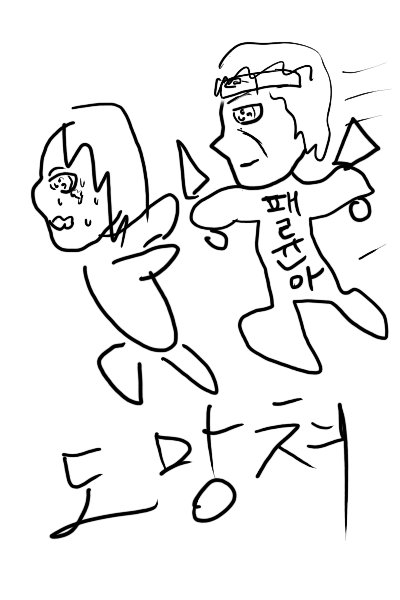 패륜아
도망쳐